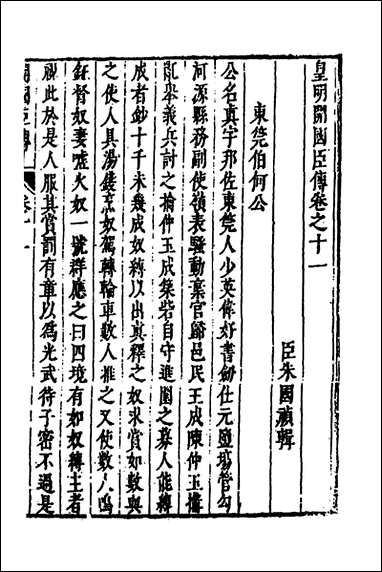 皇明開國臣傳卷之十一
臣朱國禎輯
東莞伯何公
公名真字邦佐東莞人少英偉好書劍仕元鹽場管勾
河源縣務副使嶺表騷動棄官歸邑民王成陳仲玉搆
亂舉義兵討之擒仲玉成築砦自守進圍之募人能縛
成者鈔十千未幾成奴縛以出真釋之奴求賞如數與
之使人具湯鑊烹奴駕轉輪車數人推之又使數人鳴
鉦督奴妻噓火奴一號群應之曰四境有如奴縛主者
視此於是人服其賞罰有章以為光武待子密不過是